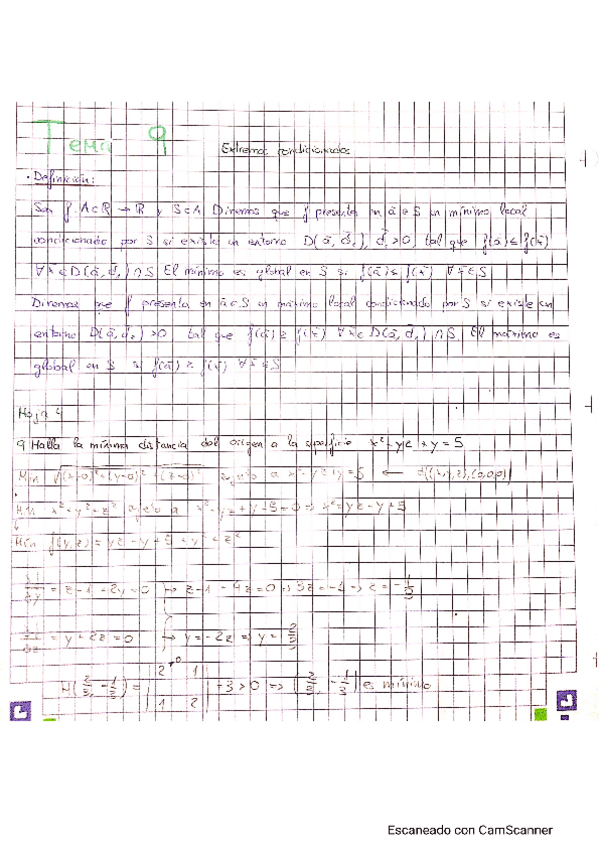 Tema 9
Extremos condicionados
· Definición:
Sea f: A⊂R → R y S⊂A Diremos que f presenta en ā∈S un mínimo local
condicionado por S si existe un entorno D(ā, d̄₁), d̄₁>0, tal que f(ā)≤f(x̄)
∀x̄∈D(ā, d₁)∩S. El mínimo es global en S si f(ā)≤f(x̄) ∀x̄∈S
Diremos que f presenta en ā∈S un máximo local condicionado por S si existe un
entorno D(ā, d₂)>0 tal que f(ā)≥f(x̄) ∀x̄∈D(ā, d₂)∩S. El máximo es
global en S si f(ā)≥f(x̄) ∀x̄∈S
Hoja 4
9 Halla la mínima distancia del origen a la superficie x²-yz+y=5
Min √(x-0)²+(y-0)²+(z-0)² sujeto a x²-yz+y=5 ← d((x,y,z),(0,0,0))
Min x²+y²+z² sujeto a x²-yz+y-5=0 ⇒ x²=yz-y+5
Min f(y,z)=yz-y+5+y²+z²
=z-1-2y=0 → z-1-4z=0 ⇒ 3z=-1 ⇒ z=-1/3
=y+2z=0 → y=-2z ⇒ y=2/3
H(2/3, -1/3)= |2 1| =3>0 ⇒ (2/3, -1/3) es mínimo
|1 2|
Escaneado con CamScanner